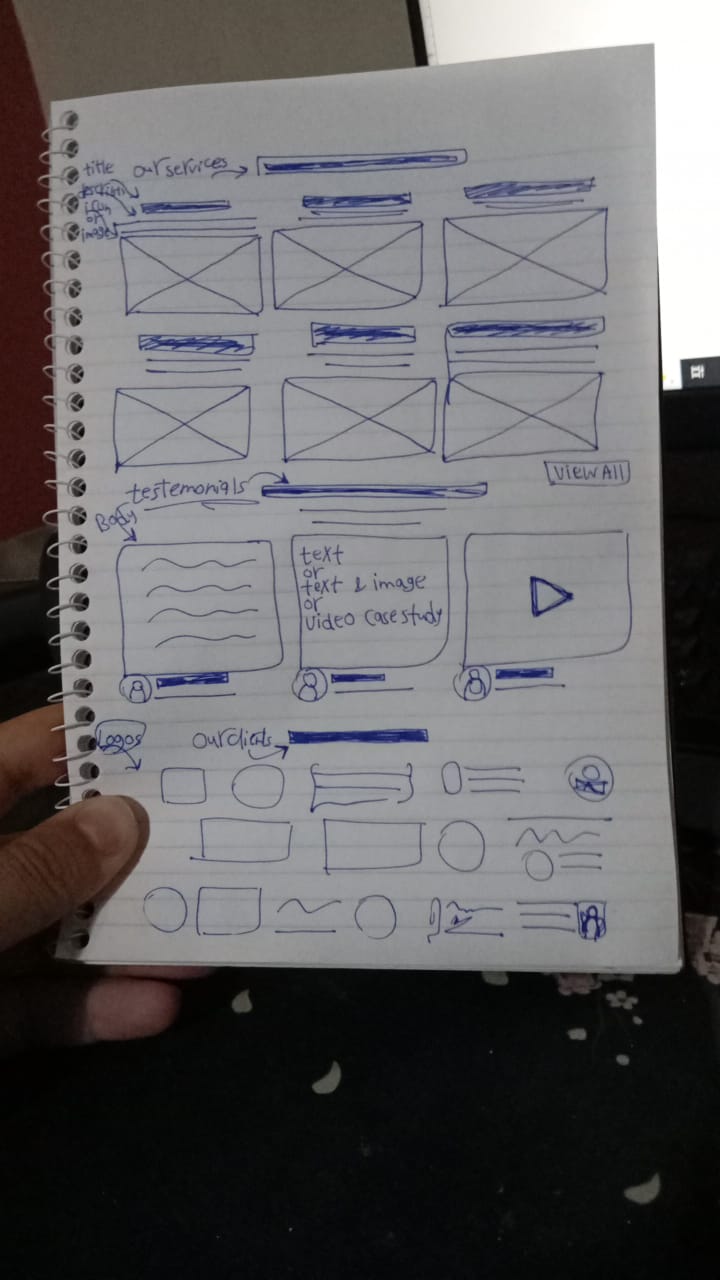 title
our services
icon
or
image
View All
testemonials
Body
text
or
text & image
or
video case study
Logos
our clients